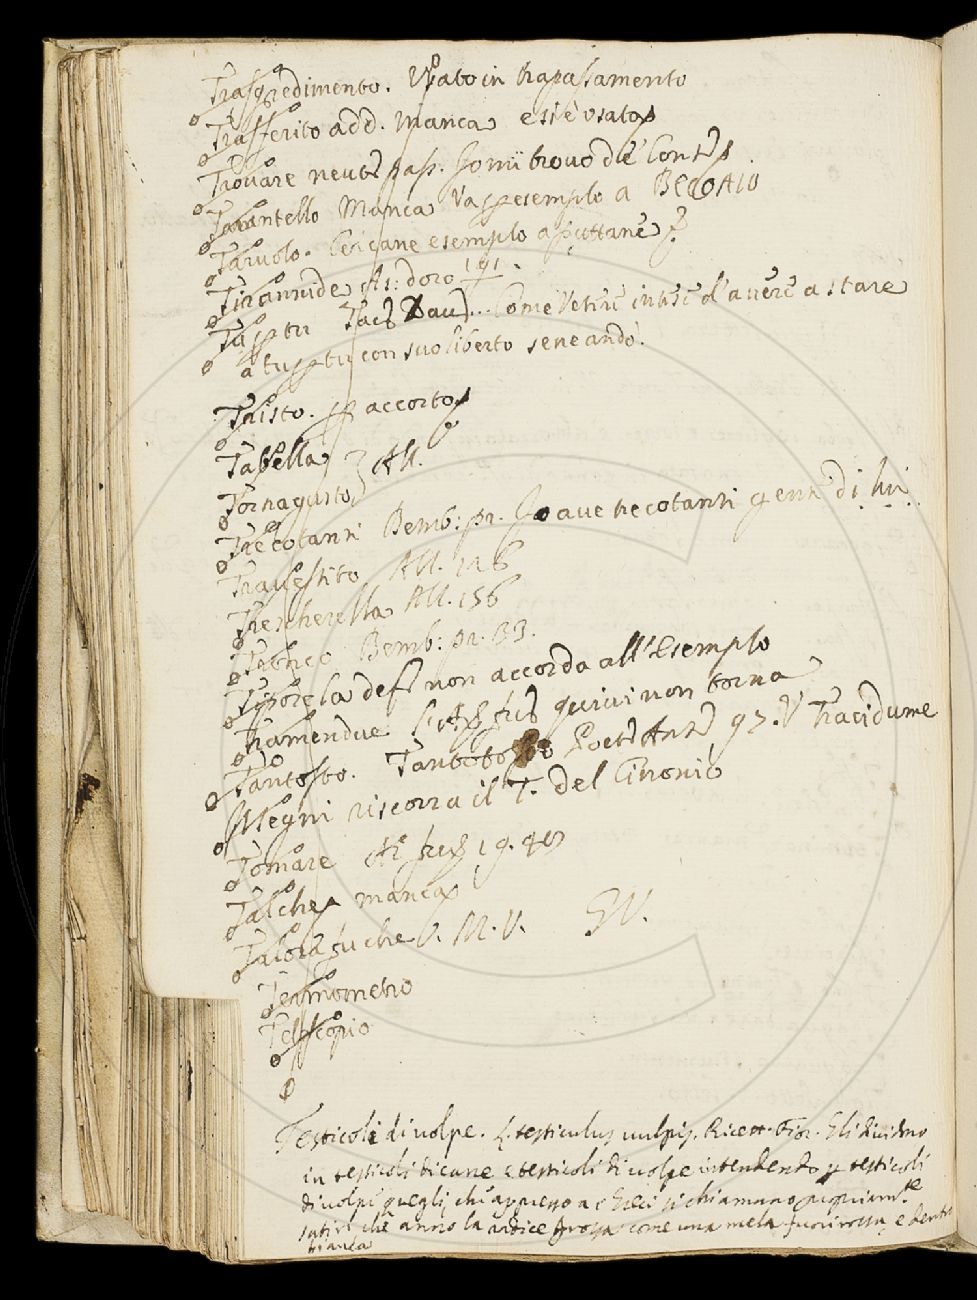 Trasgredimento. Usato in trapassamento
Trasferito add. manca e si è usato
Trovare neutr. pass. Io mi trovo de' Conti
Tarantello Manca Va per esemplo a BECCAIO
Taruolo. Cercane esemplo a puttane
Tirannide At: doro 191.
Tu per tu Tac Dav.... Come Vetire intise d'avere a stare
a tu per tu con suo liberto seneando.
Tristo. per accorto
Tassella
Tornagusto All.
Trecotanti Bemb: pr. Io ave trecotanti genti di lui
Travestito All. 126
Trescherella All. 156
Bemb: pr. 33.
la def. non accorda all'esemplo
Tramendue quivi non torna
Tantosto. Tantotosto Poet Ant 97. V Tracidume
Megni riscorra il T. del Cinonio
Tomare
Talche manca
Talora fu che V. M. V. GV.
Termometro
Telescopio
Testicoli di volpe. L. testiculus vulpis. Ricett. Fior. Gli dividono
in testicoli di cane e testicoli di volpe intendendo per testicoli
di volpe quegli, chi appresso a' Greci si chiamano propriamte
satiri che anno la radice grossa come una mela fuori rossa, e dentro
bianca